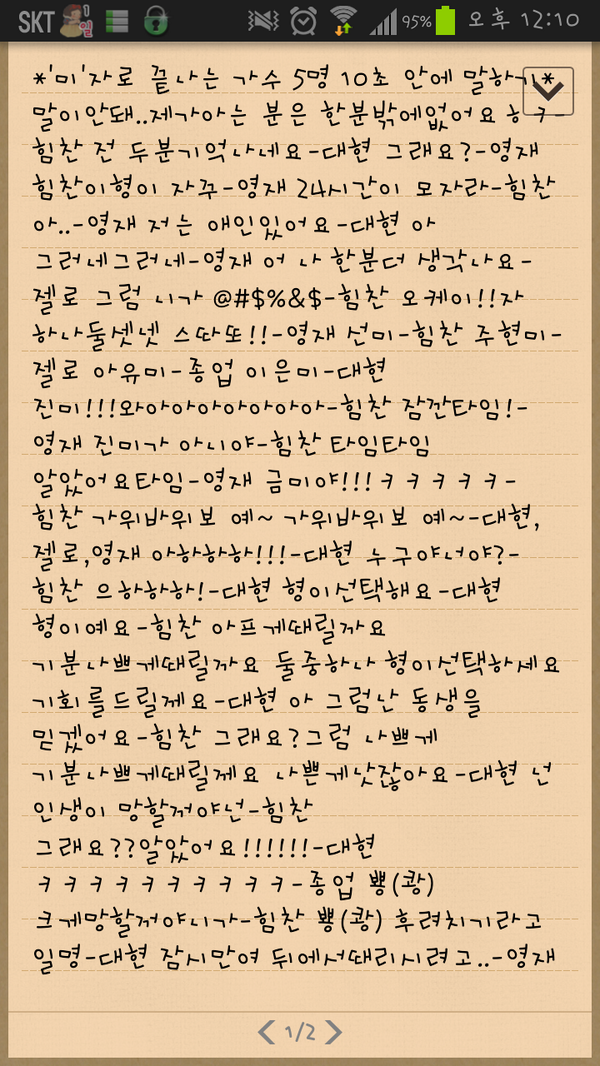 SKT 1 일 95% 오후 12:10
*'미'자로 끝나는 가수 5명 10초 안에 말하기*
말이안돼..제가아는 분은 한분밖에없어요 ㅎㅋ-
힘찬 전 두분기억나네요-대현 그래요?-영재
힘찬이형이 자꾸-영재 24시간이 모자라-힘찬
아..-영재 저는 애인있어요-대현 아
그러네그러네-영재 어 나 한분더 생각나요-
젤로 그럼 니가 @#$%&$-힘찬 오케이!!자
하나둘셋넷 스따또!!-영재 선미-힘찬 주현미-
젤로 아유미-종업 이은미-대현
진미!!!와아아아아아아아-힘찬 잠깐타임!-
영재 진미가 아니야-힘찬 타임타임
알았어요타임-영재 금미야!!!ㅋㅋㅋㅋㅋ-
힘찬 가위바위보 예~ 가위바위보 예~-대현,
젤로,영재 아하하하!!!-대현 누구야너야?-
힘찬 으하하하!-대현 형이선택해요-대현
형이예요-힘찬 아프게때릴까요
기분나쁘게때릴까요 둘중하나 형이선택하세요
기회를드릴게요-대현 아 그럼난 동생을
믿겠어요-힘찬 그래요?그럼 나쁘게
기분나쁘게때릴게요 나쁜게낫잖아요-대현 넌
인생이 망할꺼야넌-힘찬
그래요??알았어요!!!!!!-대현
ㅋㅋㅋㅋㅋㅋㅋㅋㅋㅋ-종업 뿅(쾅)
크게망할꺼야니가-힘찬 뿅(쾅) 후려치기라고
일명-대현 잠시만여 뒤에서때리시려고..-영재
1/2